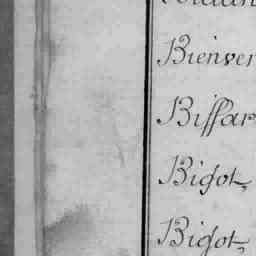 Bienver
Biffar
Bigot,
Bigot,